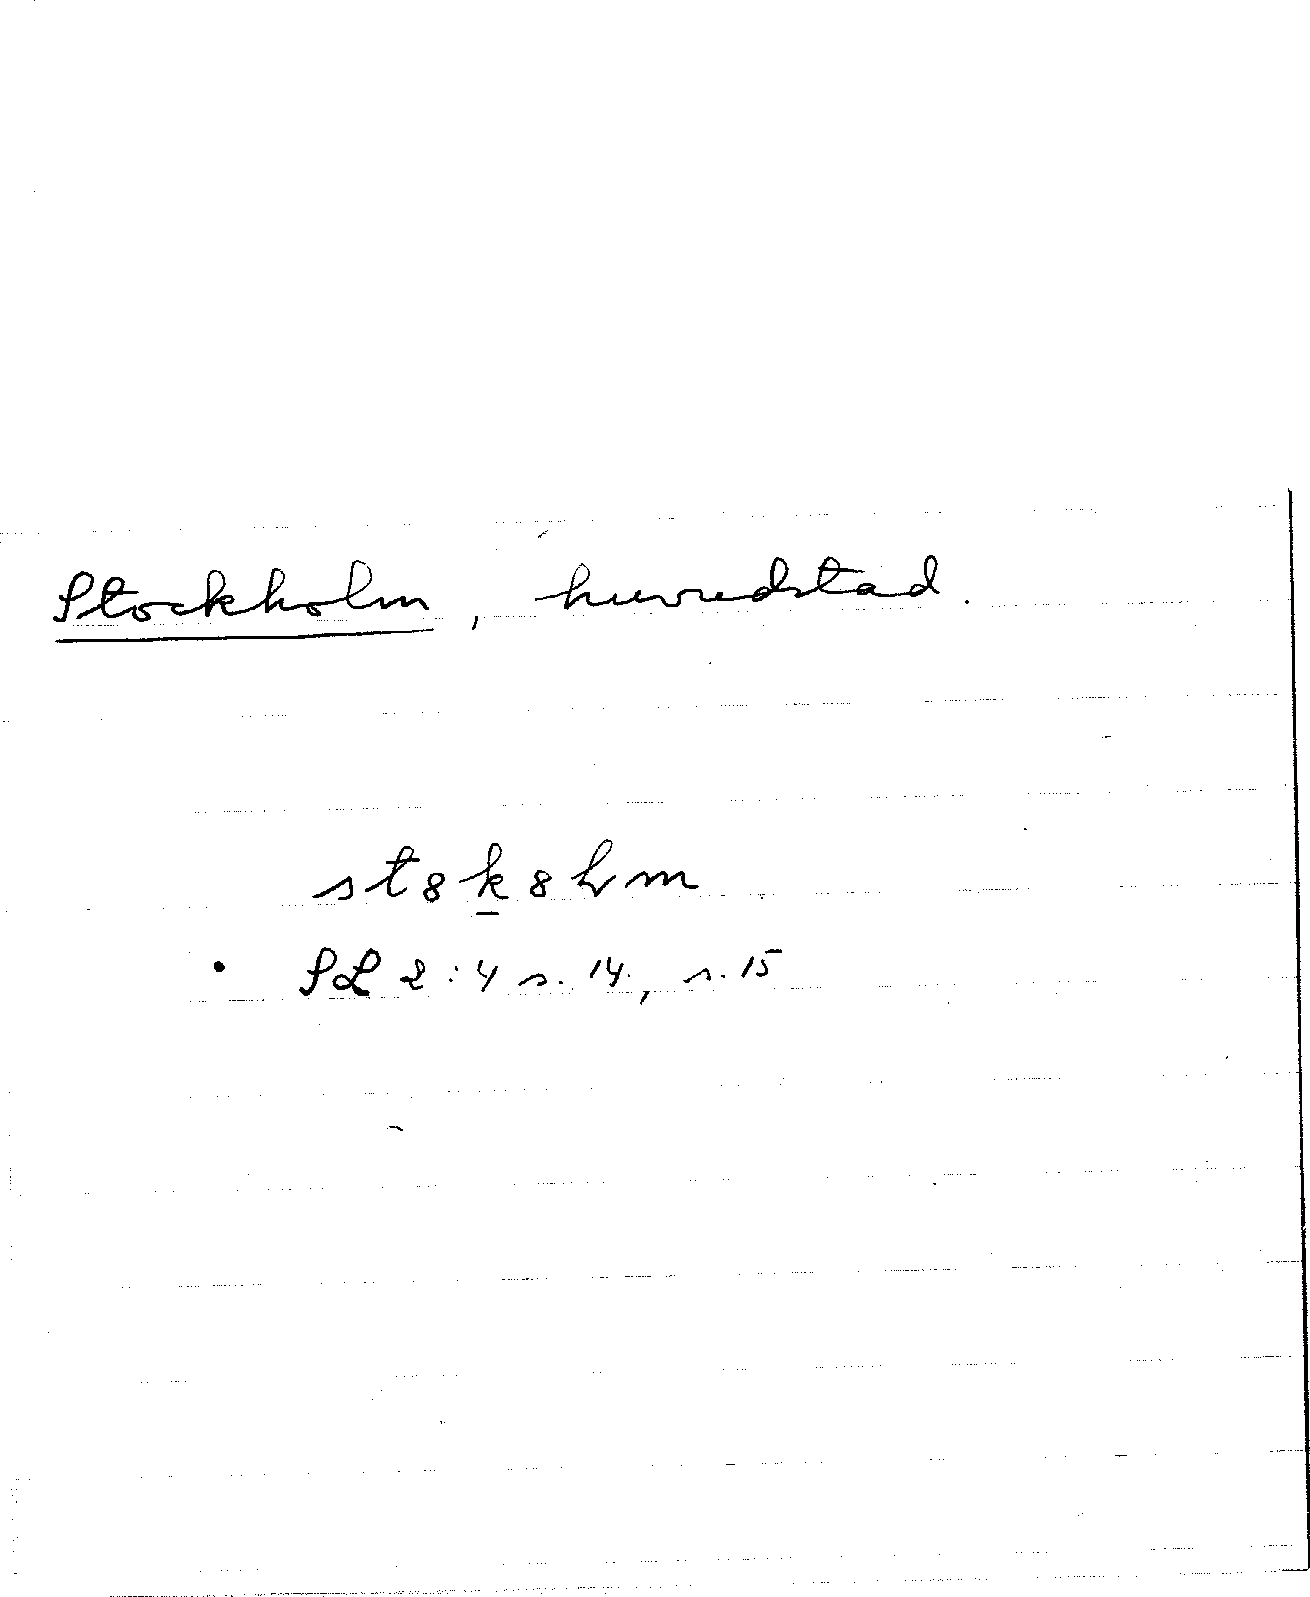 Stockholm, huvudstad.
st8k8hm
• SL 2:4 s. 14, s. 15